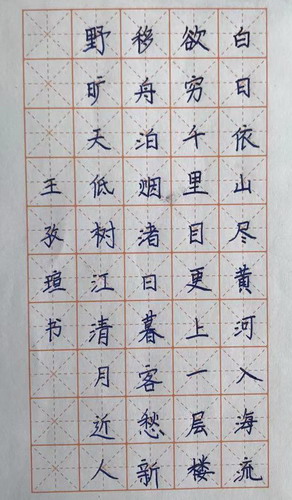 白日依山尽黄河入海流
欲穷千里目更上一层楼
移舟泊烟渚日暮客愁新
野旷天低树江清月近人
王孜瑄书